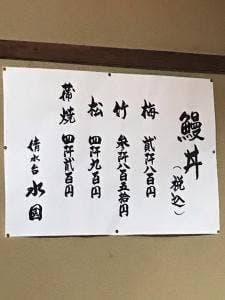 鰻丼(税込)
梅 貳阡八百円
竹 参阡八百五拾円
松 四阡九百円
蒲焼 四阡貳百円
清水古 水国